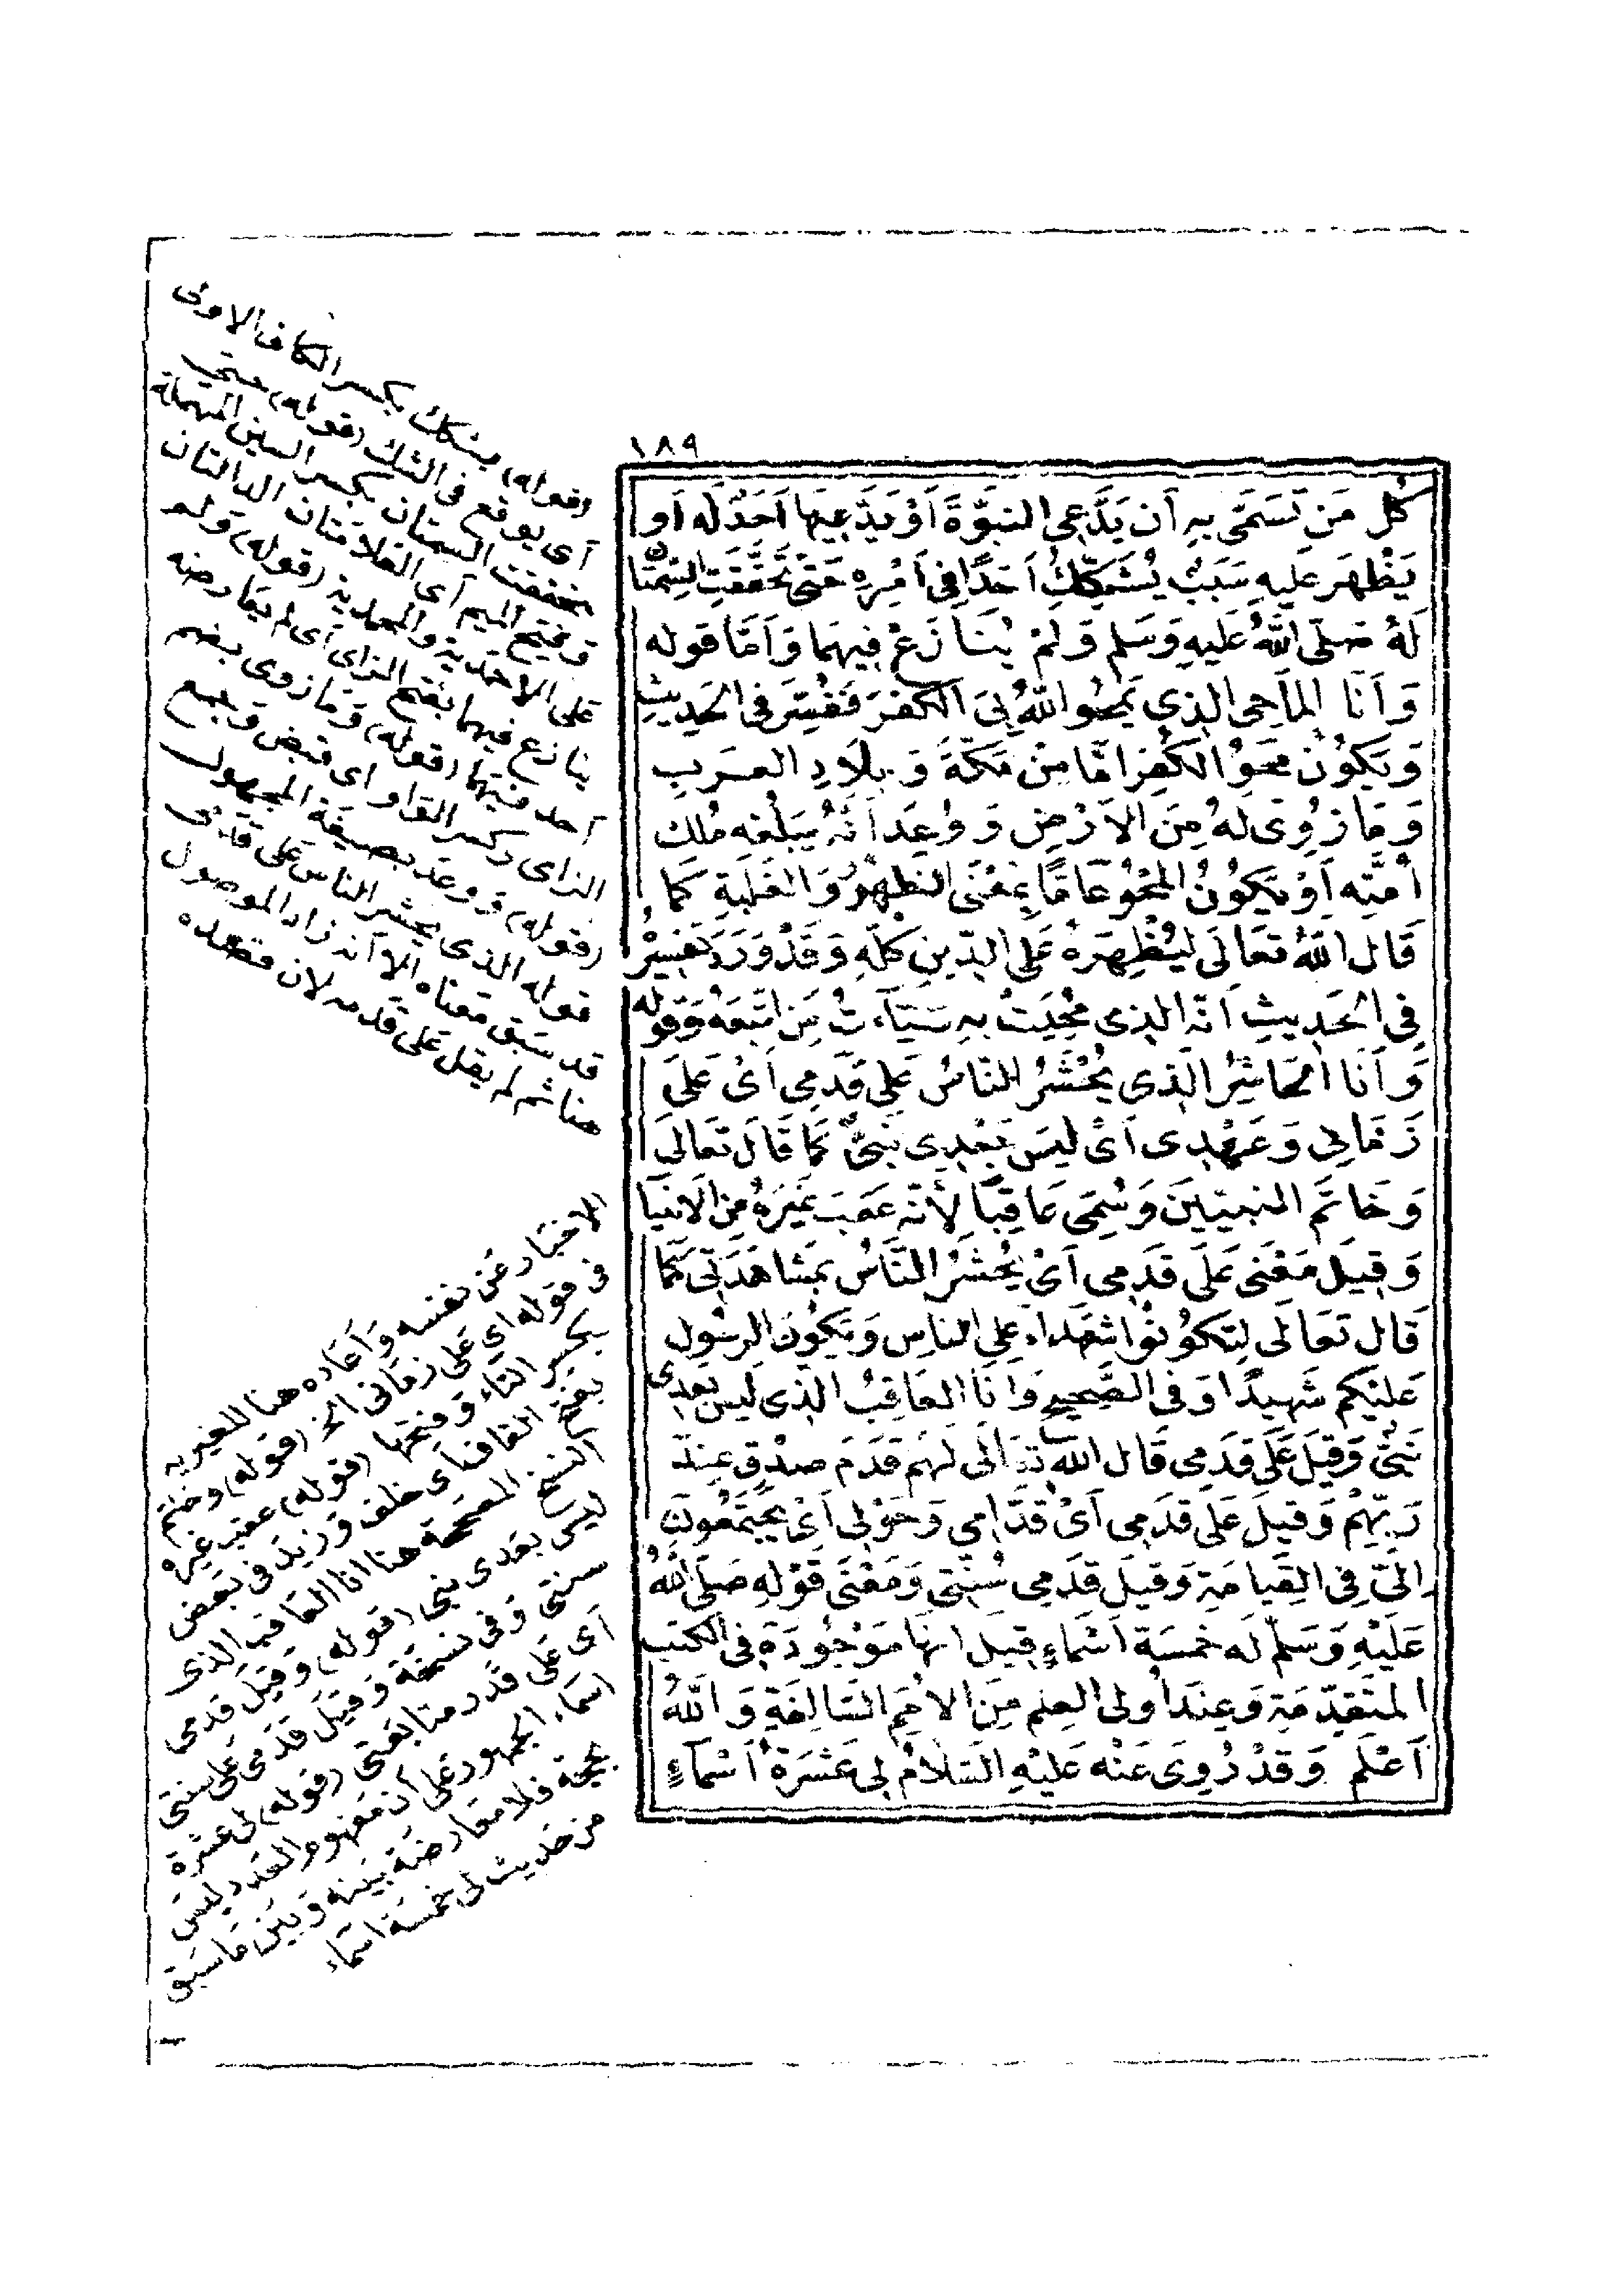 ١٨٩
كُلَّ مَنْ تَسَمَّى بِهِ أَن يَدَّعِى النبُوَّةَ أَوْ يَدَّعِيَهَا أَحَدٌ لَه أو
يَظْهَرَ عَلَيهِ سَبَبٌ يُشَكِّكُ أَحَدًا فِى أَمْرِهِ حَتَّى تَحَقَّقَتِ السِّمَتَانِ
لَهُ صَلَّى اللهُ عَلَيهِ وَسَلم وَلمْ يُنَازَعْ فِيهِمَا وَأَمَّا قوله
وَأَنَا المَاحِى الذِي يَمْحُو اللهُ بِىَ الكُفْرَ فَفُسِّرَ فِى الحَدِيثِ
وَيَكُوُنُ مَحْوُ الكُفرِ امَّا مِنْ مَكَّةَ وَبِلاَدِ العَرَبِ
وَمَا زُوِىَ لَهُ مِنَ الاَرْضِ وَوُعِدَ أَنَّهُ يَبلُغه مُلك
أُمَّتِه أَوْ يَكُونُ المَحْوُ عَامًّا بِمَعْنَى الظهُورِ وَالغَلَبَةِ كَمَا
قَال اللهُ تعَالَى لِيُظْهِرَهُ عَلَى الدِّينِ كلِّهِ وَقَدْ وَرَدَ تَفسِيرُهُ
فِى الحَدِيثِ أَنّه الذِى مُحِيَتْ بِهِ سَيِّآتُ مَنِ اتَّبَعَهُ وَقوله
وَأَنَا الحَاشِرُ الذِى يُحْشَرُ النَّاسُ عَلَى قَدَمِى أَىْ عَلَى
زَمَانِى وَعَهْدِى أَىْ لَيسَ بَعْدِى نَبىٌّ كَمَا قَالَ تَعَالىَ
وَخَاتَمَ النبيّينَ وَسُمِّىَ عَاقِبًا لأَنّه عَقَبَ غَيْرَهُ مِنَ الاَنبيَا
وَقِيلَ مَعْنَى عَلَى قَدَمِى أَىْ يُحْشَرُ النَّاسُ بِمُشَاهَدَتِى كَمَا
قَال تعَالَى لِتَكُوُنوُا شُهَدَاءَ عَلَى الناسِ وَيَكُونَ الرسُولُ
عَلَيْكُم شَهِيدًا وَفِى الصَّحِيحِ وَانَا العَاقِبُ الذِى لَيسَ بَعدِى
نَبىٌّ وَقِيلَ عَلَى قَدَمِى قَال اللهُ تعَالَى لَهُم قَدَمَ صِدْقٍ عِندَ
رَبِّهِمْ وَقِيلَ عَلَى قدَمِى أَىْ قُدَّامِى وَحَوْلِى أَىْ يَجْتَمِعُونَ
إِلَىَّ فِى القِيَامَةِ وَقيلَ قدَمِى سُنَّتِى وَمَعْنَى قَوْلِهِ صَلَّى اللهُ
عَلَيْهِ وَسَلمَّ لِى خمسَةُ أَسْمَاءٍ قِيلَ انهَا مَوْجُودَةٌ فِى الكتبِ
المتَقَدِّمَةِ وَعِندَ أُولِى العِلمِ مِنَ الأُمَمِ السَّالِفَةِ وَاللهُ
أَعْلَم وَقَدْ رُوِىَ عَنْه عَلَيْهِ السَّلامُ لِى عَشْرَةُ أَسْمَاءٍ
(قوله) يشكك بكسر الكاف الاولى
أى يوقع فى الشك (قوله) حتى
تحققت السمتان بكسر السين المهملة
وفتح الميم أى العلامتان الدالتان
على الاحمدية والمحمدية (قوله) ولم
ينازع فيهما بفتح الزاى أى لم يعارضه
أحد فيهما (قوله) وما زوى بضم
الزاى وكسر الواو اى قبض وجمع
(قوله) ووعد بصيغة المجهول
قوله الذى يحشر الناس على قدمى
قد سبق معناه الا أنه زاد الموصول
هنا ثم لم يقل على قدمه لان قصده
الاخبار عن نفسه وأعاده هنا للغيريه
فى قوله اى على زمانى الخ (قوله) وخاتم
بكسر التاء وفتحها (قوله) عقب غيره
بفتح القاف أى خلف وزيد فى بعض
النسخ المصححة هنا انا العاقب الذى
ليس بعدى نبى (قوله) وقيل قدمى
سنتى وفى نسخة وقيل قدمى على سنتى
أى على قدر متابعتى (قوله) لى عشرة
اسماء الجمهور على أن مفهوم العدد ليس
بحجة فلا معارضة بينه وبين ما سبق
من حديث لى خمسة اسماء